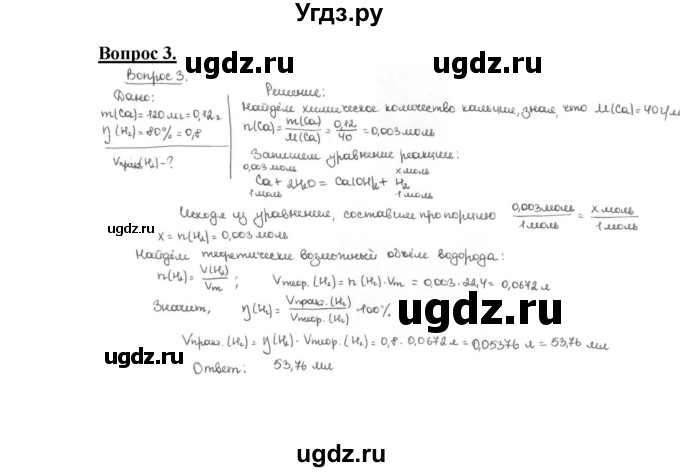 Угдз.ру
Вопрос 3.
Вопрос 3.
Дано:
m(Ca)=120 мг=0,12г
η(H₂)=80%=0,8
Vпракт(H₂)-?
Решение:
Найдём химическое количество кальция, зная, что M(Ca)=40г/м
n(Ca)=m(Ca)/M(Ca)=0,12/40=0,003 моль
Запишем уравнение реакции:
0,003 моль x моль
Ca+2H₂O=Ca(OH)₂+H₂
1 моль 1 моль
Исходя из уравнения, составим пропорцию 0,003 моль/1 моль = x моль/1 моль
x = n(H₂)=0,003 моль
Найдём теоретически возможный объём водорода:
n(H₂)=V(H₂)/Vm; Vтеор.(H₂)=n(H₂)·Vm=0,003·22,4=0,0672 л
Значит, η(H₂)=Vпракт.(H₂)/Vтеор.(H₂)·100%
Vпракт.(H₂)=η(H₂)·Vтеор.(H₂)=0,8·0,0672 л=0,05376 л=53,76 мл
Ответ: 53,76 мл
ugdz.ru
ugdz.ru
ugdz.ru
ugdz.ru
ugdz.ru
ugdz.ru
ugdz.ru
ugdz.ru